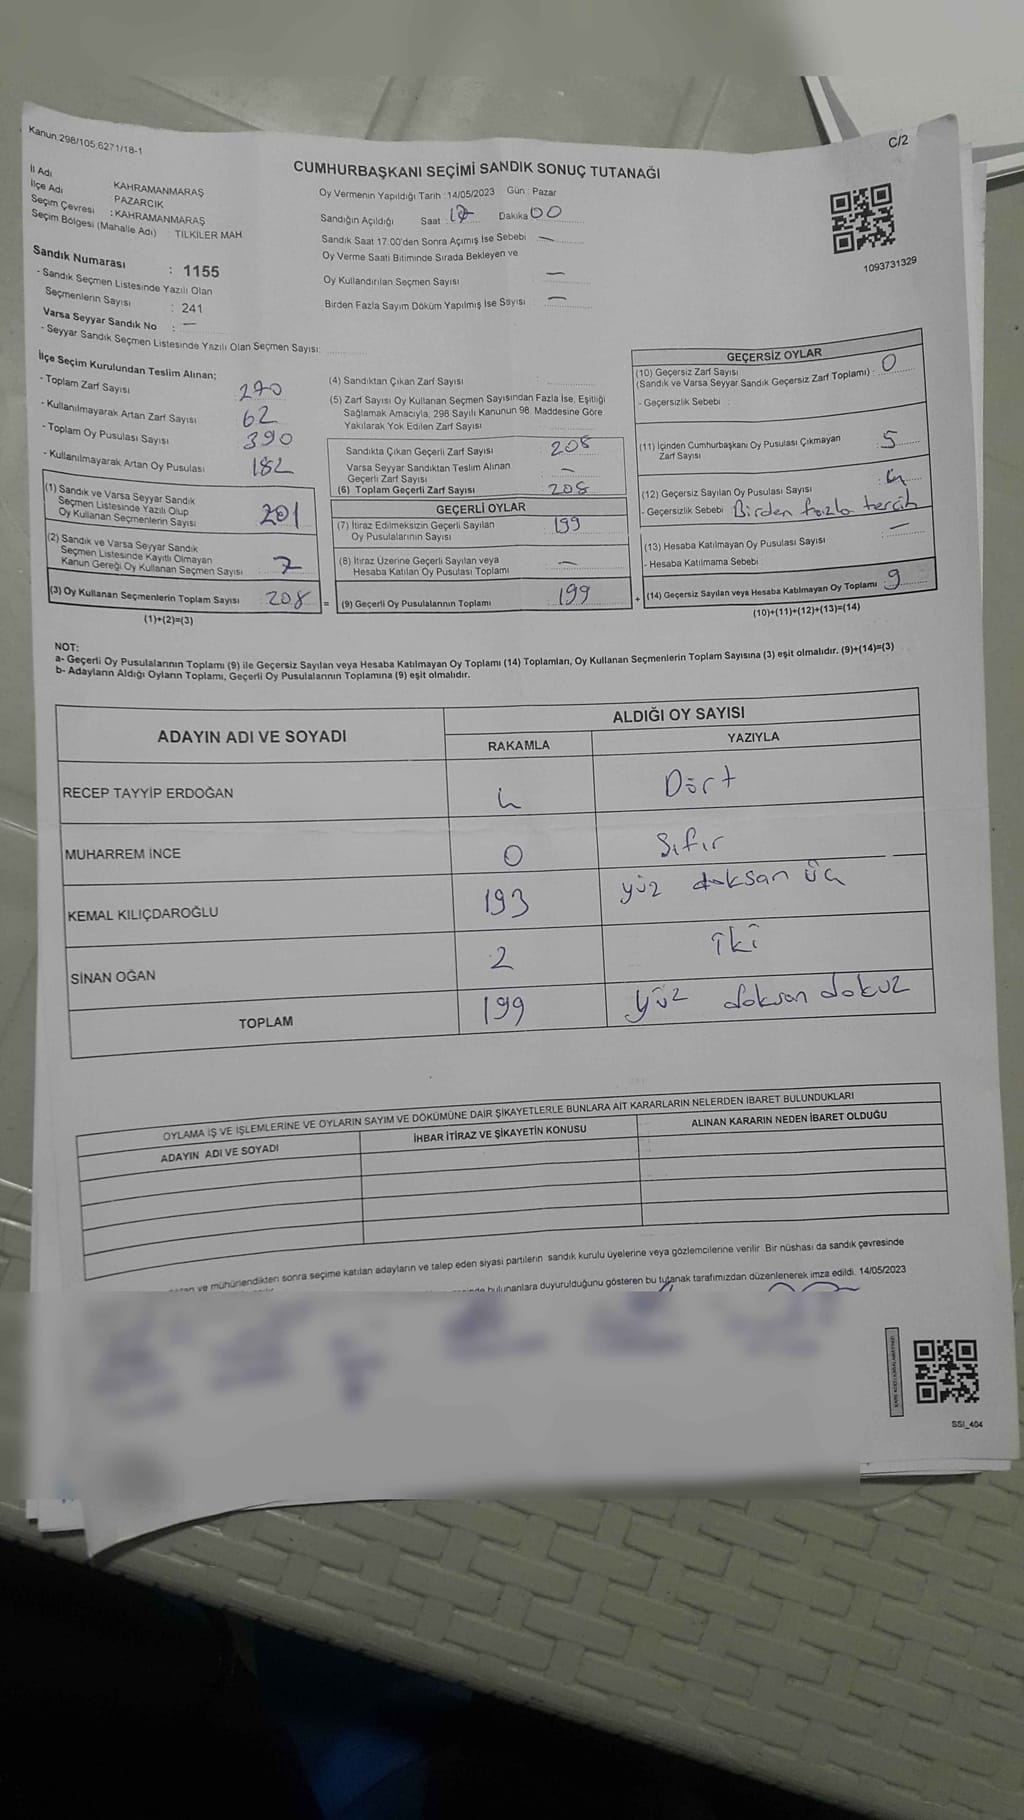 Kanun:298/105 6271/18-1
C/2
CUMHURBAŞKANI SEÇİMİ SANDIK SONUÇ TUTANAĞI
İl Adı KAHRAMANMARAŞ
İlçe Adı PAZARCIK
Seçim Çevresi : KAHRAMANMARAŞ
Seçim Bölgesi (Mahalle Adı) : TILKILER MAH.
Oy Vermenin Yapıldığı Tarih :14/05/2023 Gün : Pazar
Sandığın Açıldığı Saat : 17 Dakika 00
Sandık Saat 17:00'den Sonra Açımış İse Sebebi —
Oy Verme Saati Bitiminde Sırada Bekleyen ve
Oy Kullandırılan Seçmen Sayısı —
Birden Fazla Sayım Döküm Yapılmış İse Sayısı —
1093731329
Sandık Numarası : 1155
- Sandık Seçmen Listesinde Yazılı Olan
Seçmenlerin Sayısı : 241
Varsa Seyyar Sandık No : —
- Seyyar Sandık Seçmen Listesinde Yazılı Olan Seçmen Sayısı:
İlçe Seçim Kurulundan Teslim Alınan;
- Toplam Zarf Sayısı 270
- Kullanılmayarak Artan Zarf Sayısı 62
- Toplam Oy Pusulası Sayısı 390
- Kullanılmayarak Artan Oy Pusulası 182
(1) Sandık ve Varsa Seyyar Sandık
Seçmen Listesinde Yazılı Olup
Oy Kullanan Seçmenlerin Sayısı 201
(2) Sandık ve Varsa Seyyar Sandık
Seçmen Listesinde Kayıtlı Olmayan
Kanun Gereği Oy Kullanan Seçmen Sayısı 7
(3) Oy Kullanan Seçmenlerin Toplam Sayısı 208 =
(1)+(2)=(3)
(4) Sandıktan Çıkan Zarf Sayısı
(5) Zarf Sayısı Oy Kullanan Seçmen Sayısından Fazla İse, Eşitliği
Sağlamak Amacıyla; 298 Sayılı Kanunun 98. Maddesine Göre
Yakılarak Yok Edilen Zarf Sayısı
Sandıkta Çıkan Geçerli Zarf Sayısı 208
Varsa Seyyar Sandıktan Teslim Alınan
Geçerli Zarf Sayısı —
(6) Toplam Geçerli Zarf Sayısı 208
GEÇERLİ OYLAR
(7) İtiraz Edilmeksizin Geçerli Sayılan
Oy Pusulalarının Sayısı 199
(8) İtiraz Üzerine Geçerli Sayılan veya
Hesaba Katılan Oy Pusulası Toplamı —
(9) Geçerli Oy Pusulalarının Toplamı 199 +
GEÇERSİZ OYLAR
(10) Geçersiz Zarf Sayısı
(Sandık ve Varsa Seyyar Sandık Geçersiz Zarf Toplamı) : 0
- Geçersizlik Sebebi :
(11) İçinden Cumhurbaşkanı Oy Pusulası Çıkmayan
Zarf Sayısı 5
(12) Geçersiz Sayılan Oy Pusulası Sayısı : 4
- Geçersizlik Sebebi Birden fazla tercih
(13) Hesaba Katılmayan Oy Pusulası Sayısı : —
- Hesaba Katılmama Sebebi
(14) Geçersiz Sayılan veya Hesaba Katılmayan Oy Toplamı : 9
(10)+(11)+(12)+(13)=(14)
NOT:
a- Geçerli Oy Pusulalarının Toplamı (9) ile Geçersiz Sayılan veya Hesaba Katılmayan Oy Toplamı (14) Toplamları, Oy Kullanan Seçmenlerin Toplam Sayısına (3) eşit olmalıdır. (9)+(14)=(3)
b- Adayların Aldığı Oyların Toplamı, Geçerli Oy Pusulalarının Toplamına (9) eşit olmalıdır.
ADAYIN ADI VE SOYADI ALDIĞI OY SAYISI
RAKAMLA YAZIYLA
RECEP TAYYİP ERDOĞAN 4 Dört
MUHARREM İNCE 0 Sıfır
KEMAL KILIÇDAROĞLU 193 yüz doksan üç
SİNAN OĞAN 2 iki
TOPLAM 199 yüz doksan dokuz
OYLAMA İŞ VE İŞLEMLERİNE VE OYLARIN SAYIM VE DÖKÜMÜNE DAİR ŞİKAYETLERLE BUNLARA AİT KARARLARIN NELERDEN İBARET BULUNDUKLARI
ADAYIN ADI VE SOYADI İHBAR İTİRAZ VE ŞİKAYETİN KONUSU ALINAN KARARIN NEDEN İBARET OLDUĞU
ve mühürlendikten sonra seçime katılan adayların ve talep eden siyasi partilerin sandık kurulu üyelerine veya gözlemcilerine verilir. Bir nüshası da sandık çevresinde
bulunanlara duyurulduğunu gösteren bu tutanak tarafımızdan düzenlenerek imza edildi. 14/05/2023
SSI_404